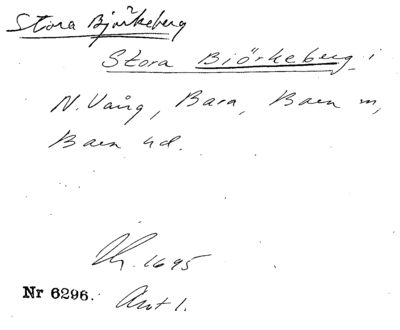 Stora Björkeberg
Stora Biörkeberg i
N. Vång, Bara, Baen m,
Baen hd.
1695
Nr 6296. Avt 1.